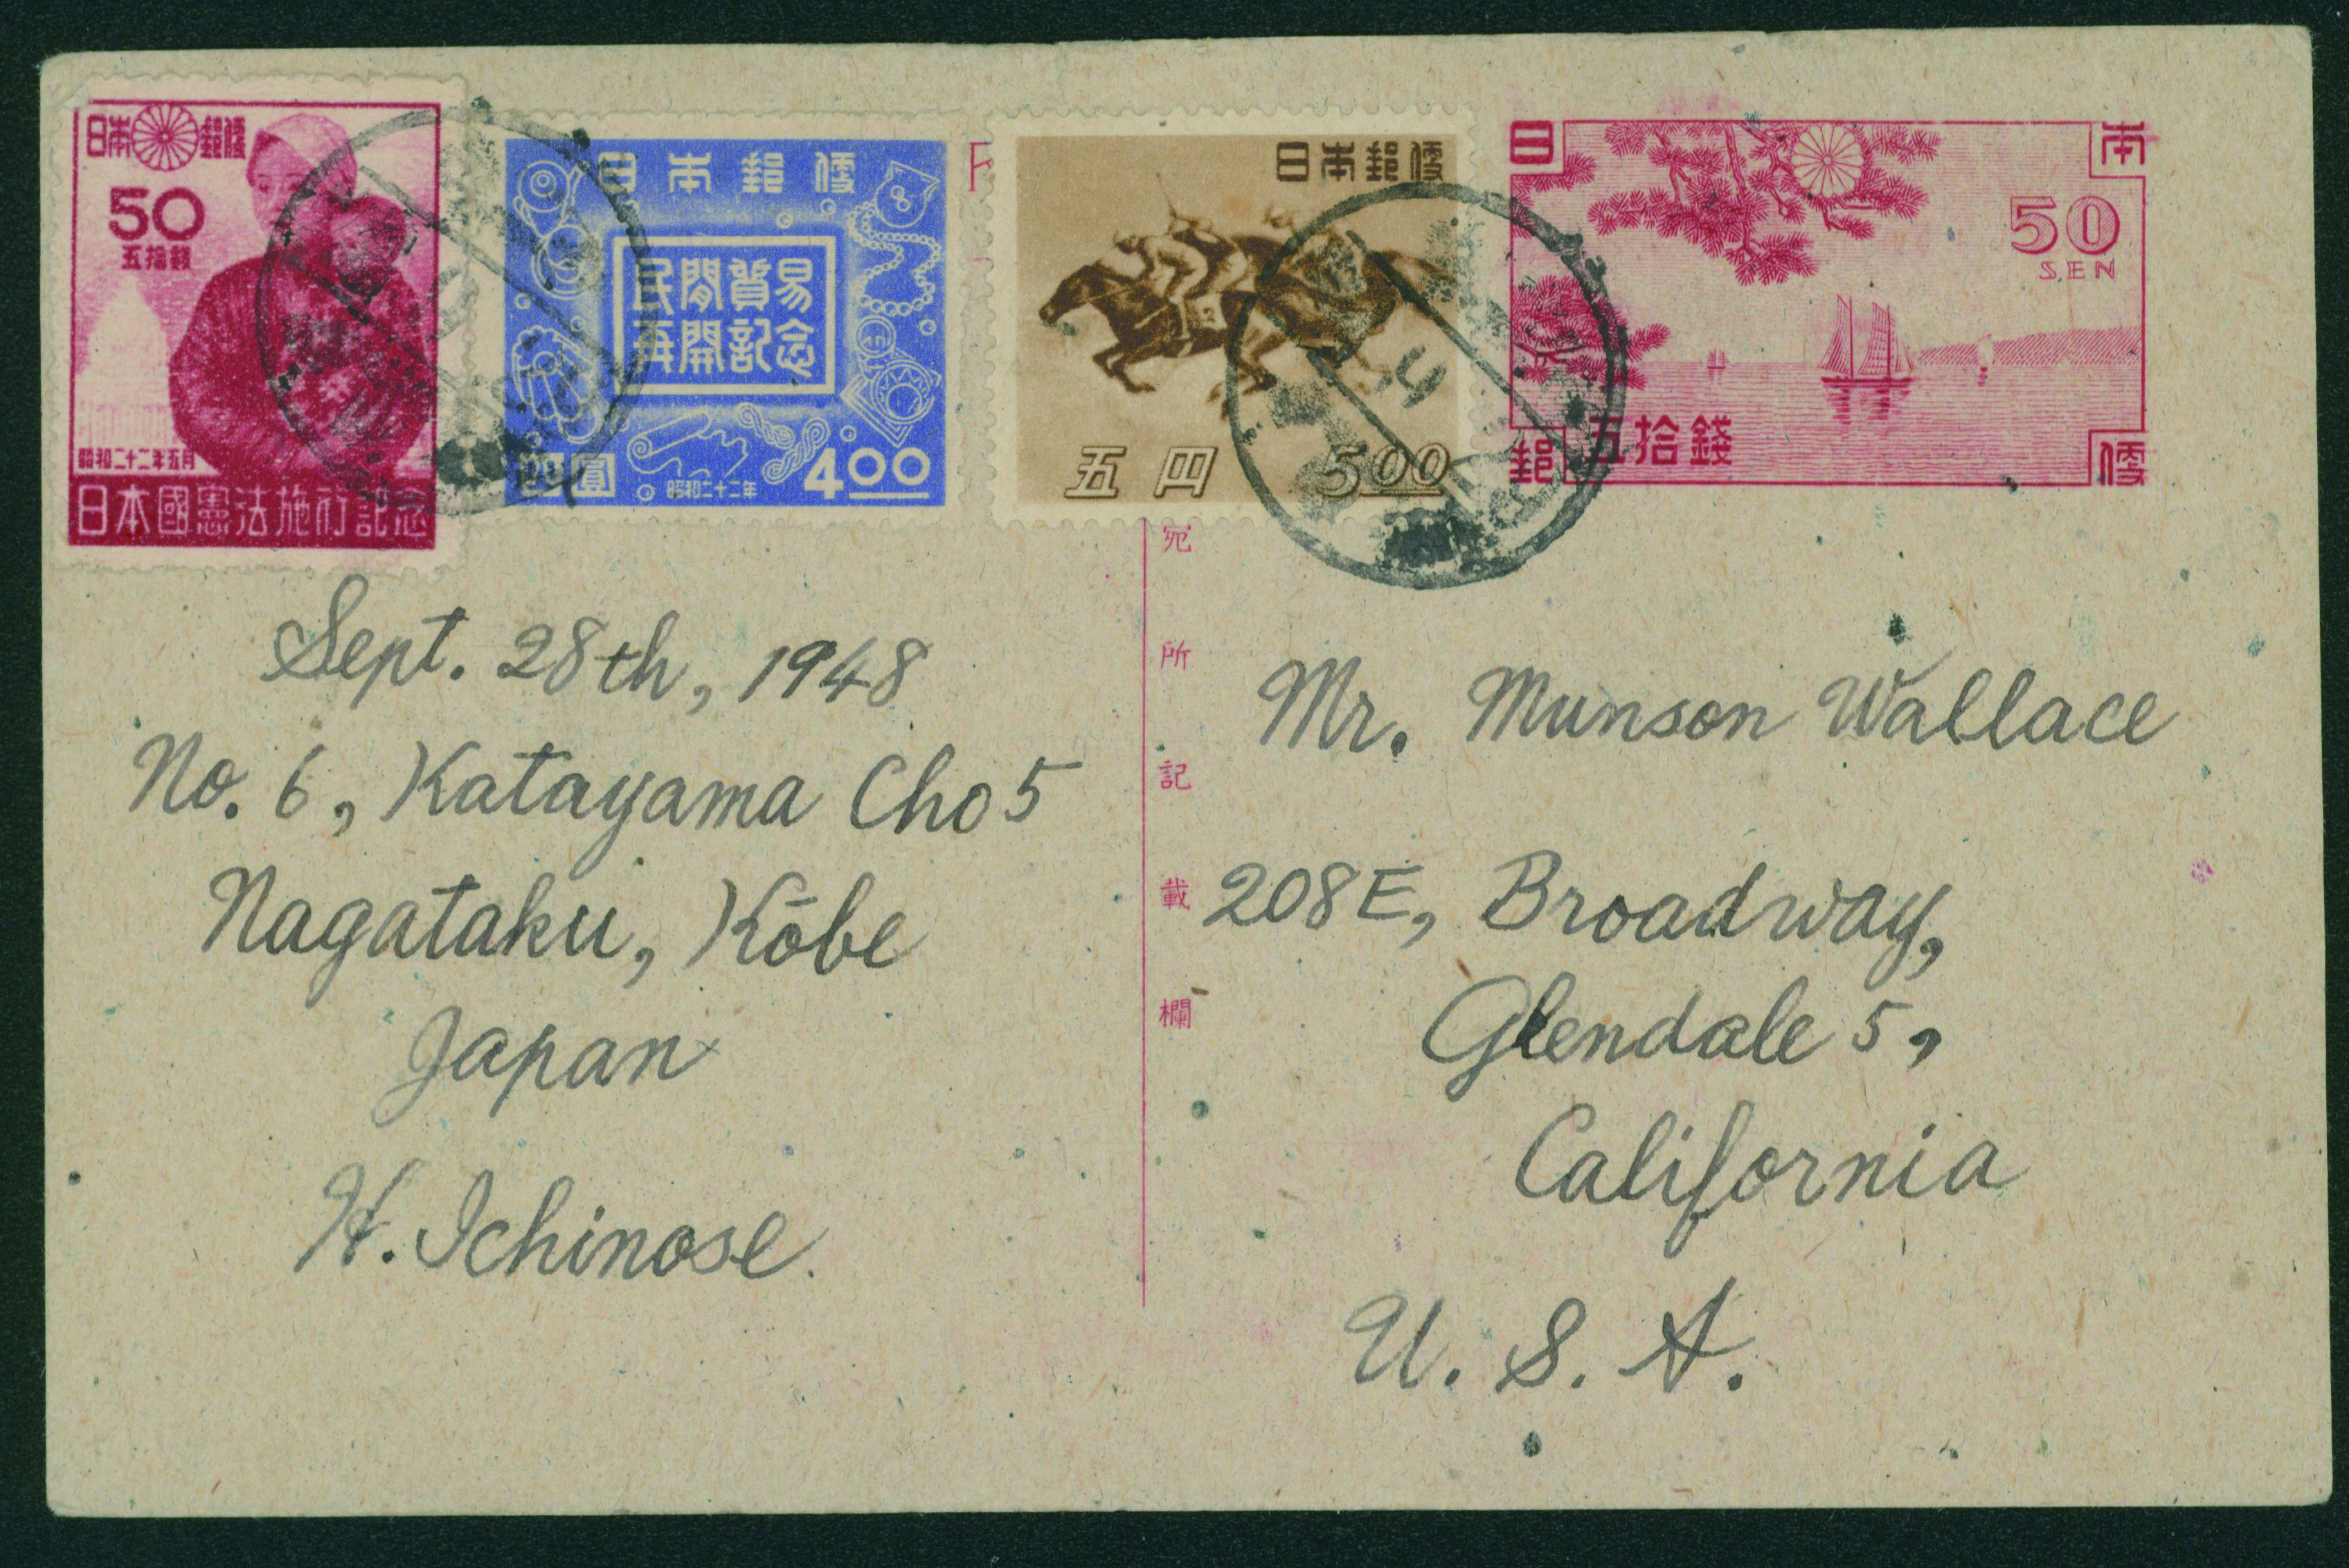 日本郵便
50
五拾錢
昭和二十二年五月
日本國憲法施行記念
日本郵便
民間貿易
再開記念
四圓
昭和二十二年
4.00
日本郵便
五円
5.00
日本
50
SEN
五拾錢
郵便
宛所記載欄
Sept. 28th, 1948
No. 6, Katayama Cho 5
Nagataku, Kōbe
Japan
H. Ichinose.
Mr. Munson Wallace
208E, Broadway,
Glendale 5,
California
U. S. A.